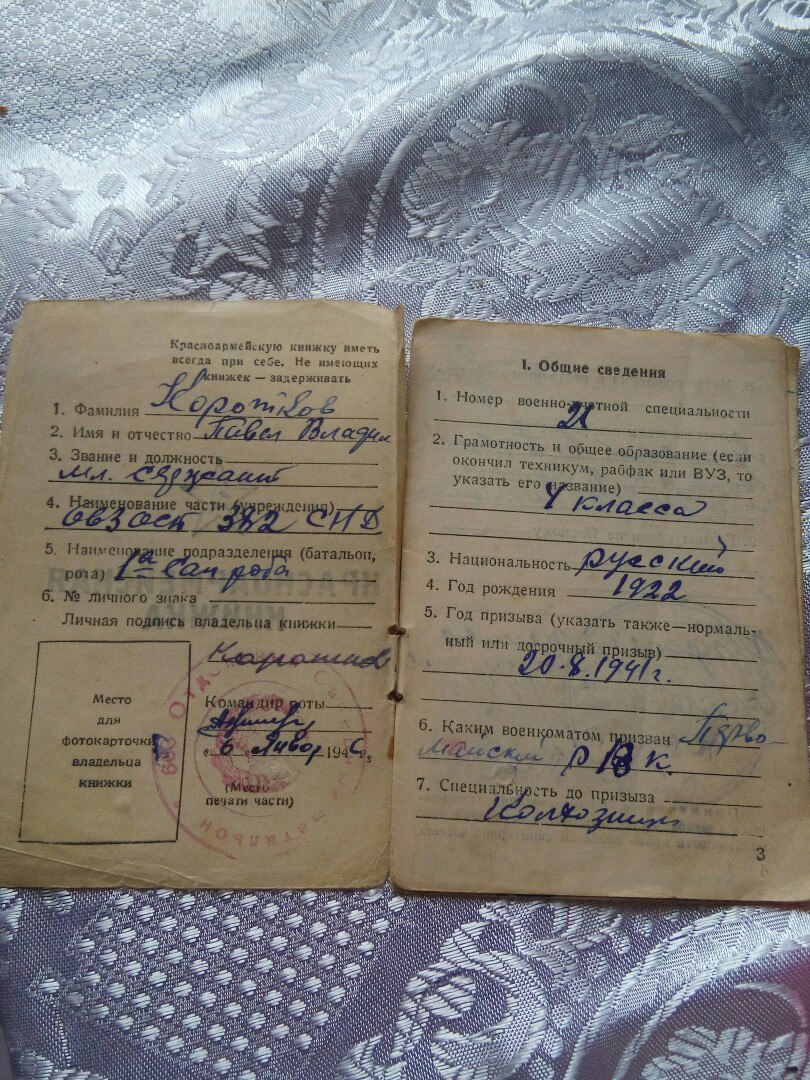 Красноармейскую книжку иметь
всегда при себе. Не имеющих
книжек — задерживать
1. Фамилия Коротков
2. Имя и отчество Павел Владим
3. Звание и должность
мл. сержант
4. Наименование части (учреждения)
382
5. Наименование подразделения (батальон,
рота) 1ая сан рота
6. № личного знака
Личная подпись владельца книжки
Коротков
Место
для
фотокарточки
владельца
книжки
Командир роты
„6" 194
(Место
печати части)
1. Общие сведения
1. Номер военно-учетной специальности
21
2. Грамотность и общее образование (если
окончил техникум, рабфак или ВУЗ, то
указать его название)
4 класса
3. Национальность русский
4. Год рождения 1922
5. Год призыва (указать также—нормаль-
ный или досрочный призыв)
20.8.1941г.
6. Каким военкоматом призван Перво-
майский РВК.
7. Специальность до призыва
Колхозник
3